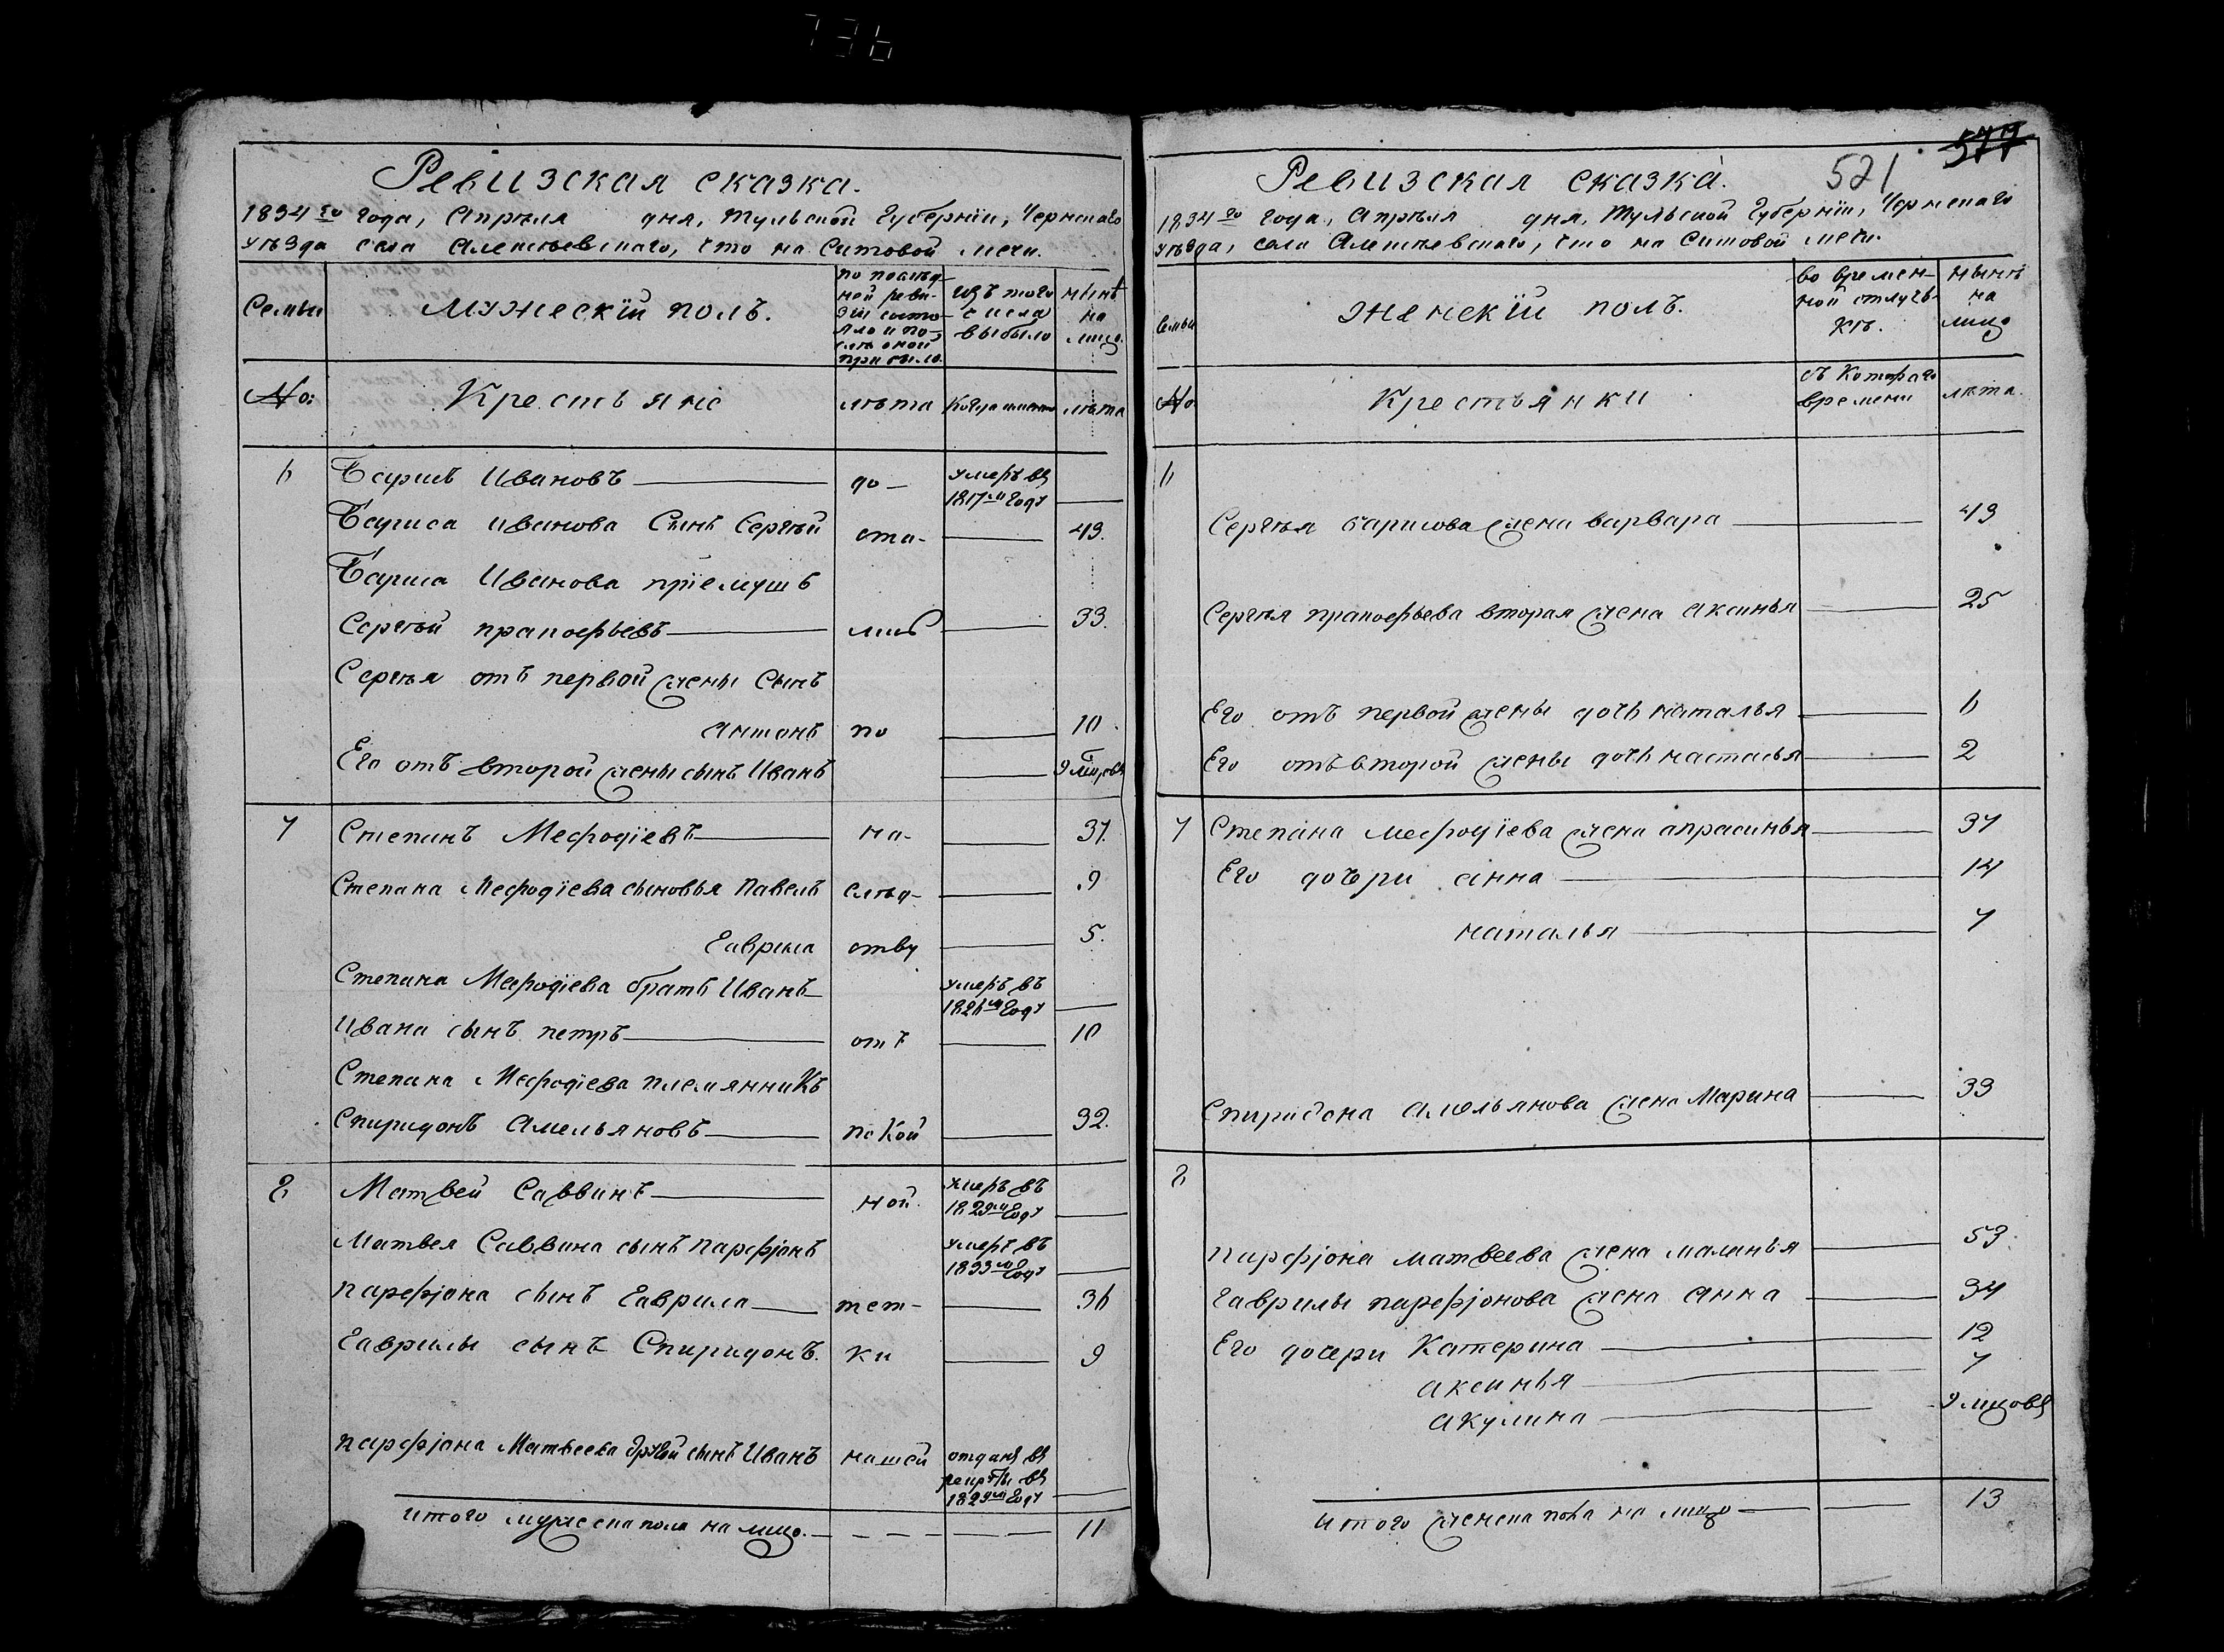 736
Ревизская сказка.
1834го года, Апреля дня, Тульской Губернїи, Чернскаго
уѣзда села Алексѣевскаго, что на Ситовой мечи.
Семьи
Мужескїй полъ.
по послѣд-
ней реви-
зїи состо-
яло и по-
слѣ оной
прибыло.
Изъ того
числа
выбыло
нынѣ
на
лицо.
№:
Крестьяне
лѣта
Когда именно
лѣта
6
Барисъ Ивановъ
до-
умеръ въ
1817м Году
Бариса Иванова Сынъ Сергѣй
ста-
43.
Бариса Иванова прїемушъ
Сергѣй пракофьевъ
33.
Сергѣя отъ первой жены Сынъ
антонъ
по
10.
Его отъ второй жены сынъ Иванъ
7
Степанъ Мефодїевъ
на-
37.
Степана Мефодїева сыновья Павелъ
слѣд-
9
Гаврила
отву
5.
Степана Мефодїева братъ Иванъ
умеръ въ
1826м Году
Ивана сынъ петръ
отъ
10
Степана Мефодїева племянникъ
Спиридонъ Амельяновъ
32.
8
Матвей Саввинъ
ной.
умеръ въ
1829м Году
Матвея Саввина сынъ парфјонъ
умеръ въ
1833м Году
парфјона сынъ Гаврила
тет-
36
Гаврилы сынъ Спиридонъ.
ки
9
парфјона Матвеева другой сынъ Иванъ
нашей
отданъ въ
рекруты въ
1829м Году
итого мужеска пола на лицо.
11
577
521
Ревизская сказка.
1834го года, апреля дня, Тульской Губернїи, Чернскаго
уѣзда, села Алексѣевскаго, что на Ситовой мечи.
Семьи
Женскїй полъ.
во времен-
ной отлуч-
кѣ.
нынѣ
на
лицо
№
Крестьянки
съ Котораго
времени
лѣта.
6
Сергѣя барисова жена варвара
43
Сергѣя пракофьева вторая жена аксинья
25
Его отъ первой жены дочь наталья
6
Его отъ второй жены дочь настасья
2
7
Степана мефодїева жена апрасинья
37
Его дочери анна
14
наталья
7
Спиридона амельянова жена Марина
33
8
парфјона матвеева жена маланья
53.
Гаврилы парфјонова жена анна
34
Его дочери Катерина
12
аксинья
7
акулина
итого женска пола на лицо
13